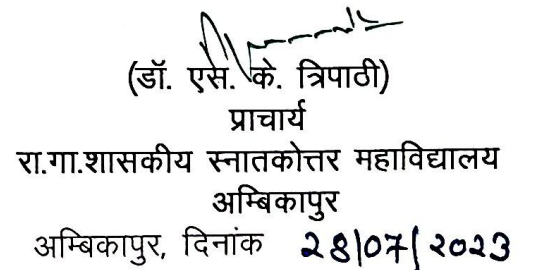 (डॉ. एस. के. त्रिपाठी)
प्राचार्य
रा.गा.शासकीय स्नातकोत्तर महाविद्यालय
अम्बिकापुर
अम्बिकापुर, दिनांक 28/07/2023